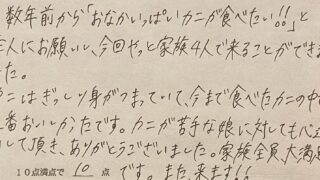 数年前から「おなかいっぱいカニが食べたい!!」と
主人にお願いし、今回やっと家族4人で来ることができま
た。
ニはぎっしり身がつまっていて、今まで食べたカニの中
番おいしかったです。カニが苦手な娘に対しても心
して頂き、ありがとうございました。家族全員大満
10点満点で 10 点 です。また来ます!!